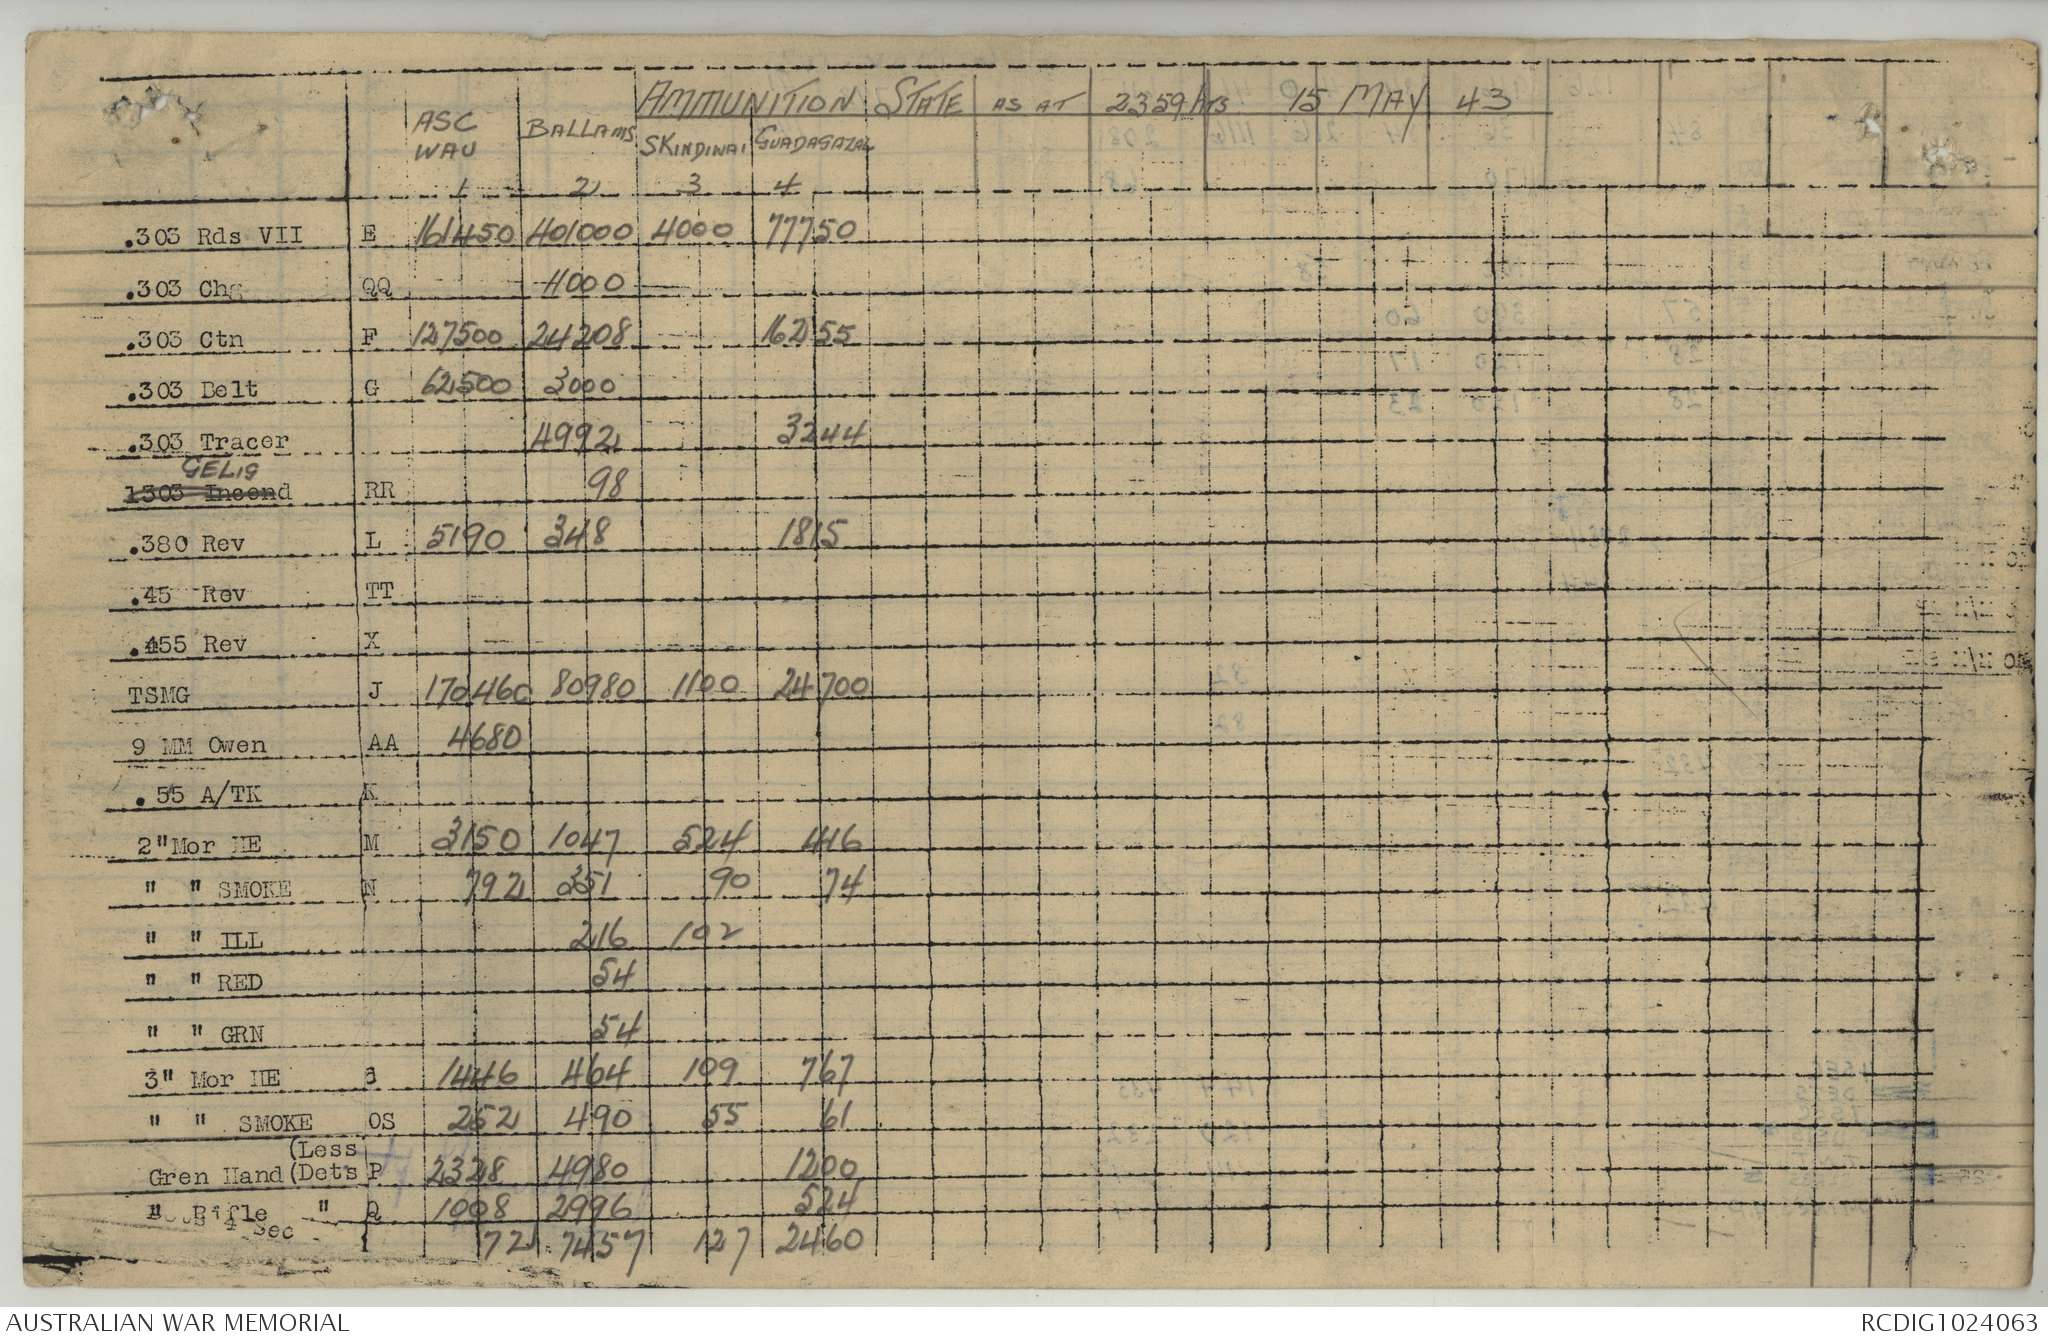 AMMUNITION STATE AS AT 2359 hrs 15 MAY 43
ASC WAU BALLAMS SKINDIWAI GUADAGAZAL
1 2 3 4
.303 Rds VII E 161450 401000 4000 77750
.303 Chg QQ 4000
.303 Ctn F 127500 24208 16255
.303 Belt G 62500 3000
.303 Tracer 4992 3244
GELIG
1303 Incend RR 98
.380 Rev L 5190 348 1815
.45 Rev TT
.455 Rev X
TSMG J 170460 80980 1100 24700
9 MM Owen AA 4680
.55 A/TK K
2" Mor HE M 3150 1047 524 416
" " SMOKE N 792 351 90 74
" " ILL 216 102
" " RED 54
" " GRN 54
3" Mor HE 1446 464 109 767
" " SMOKE OS 252 490 55 61
(Less
Gren Hand (Dets P 2328 4980 1200
" Rifle " Q 1008 2996 524
4 Sec 72 7457 127 2460
AUSTRALIAN WAR MEMORIAL RCDIG1024063